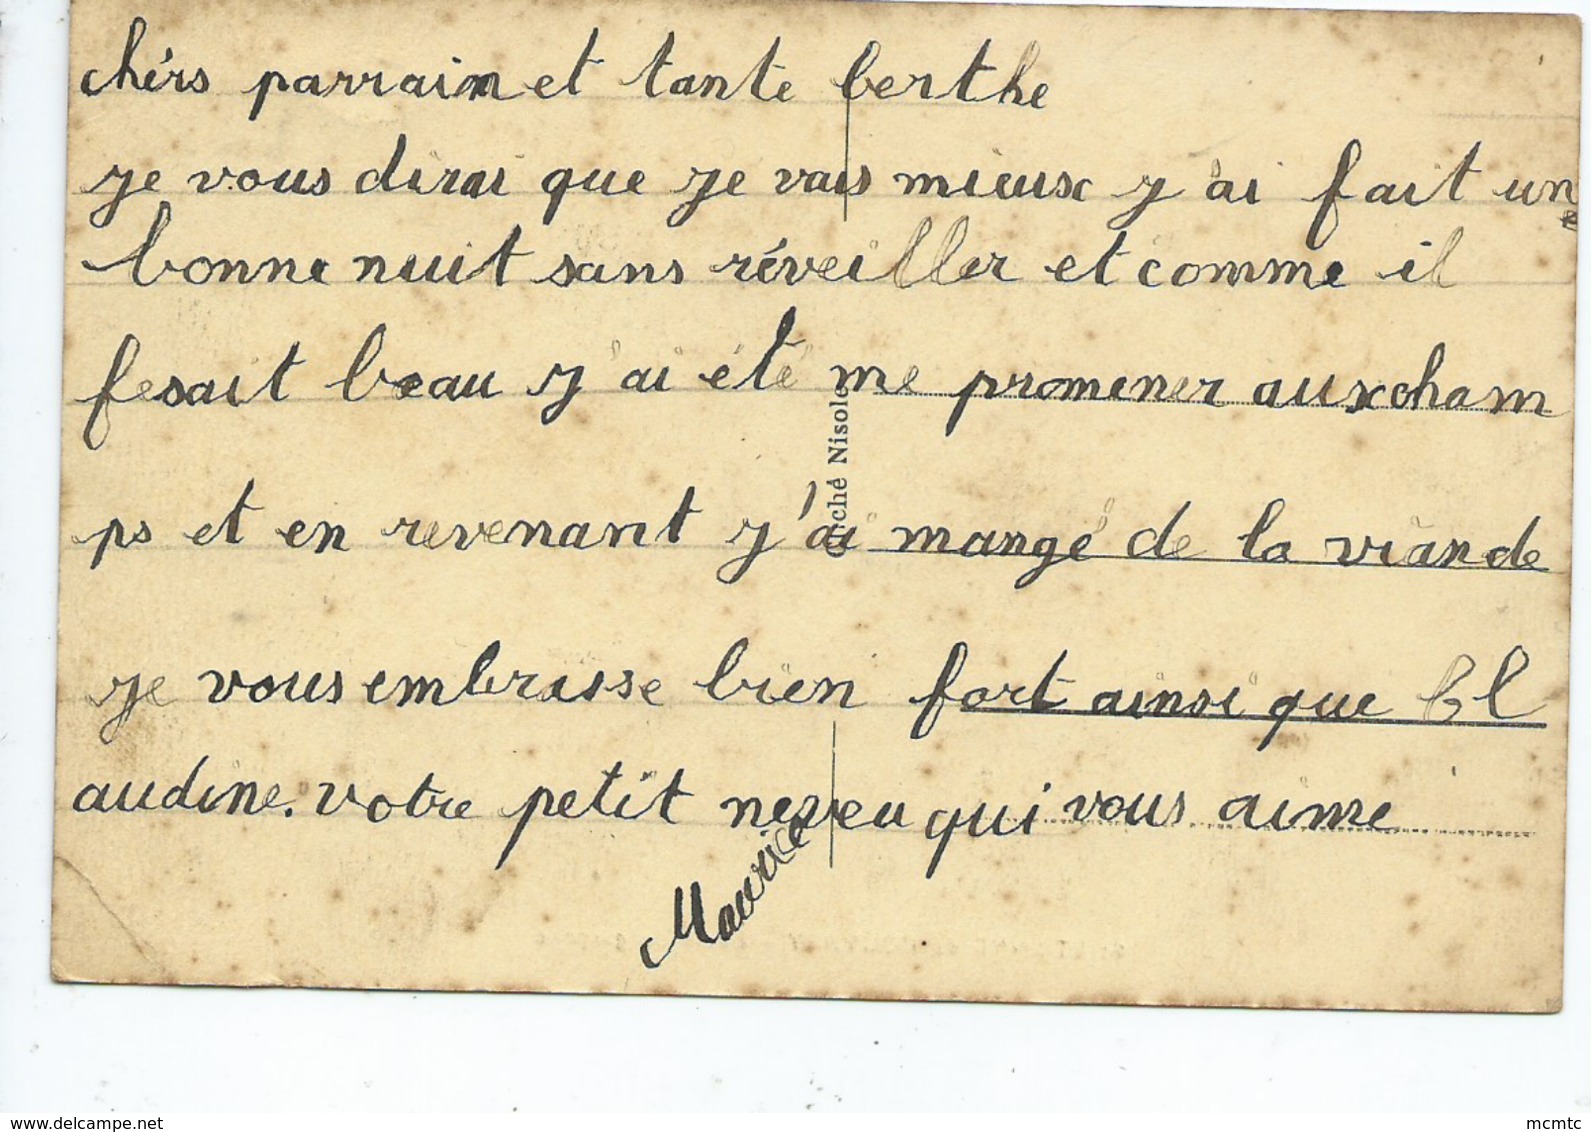 chèrs parrain et tante berthe
je vous dirai que je vais mieux j'ai fait une
bonne nuit sans réveiller et comme il
fesait beau j'ai été me promener aux cham
ps et en revenant j'ai mangé de la viande
je vous embrasse bien fort ainsi que Cl
audine. votre petit neveu qui vous aime
Maurice
Cliché Nisole
delcampe.net
mcmtc